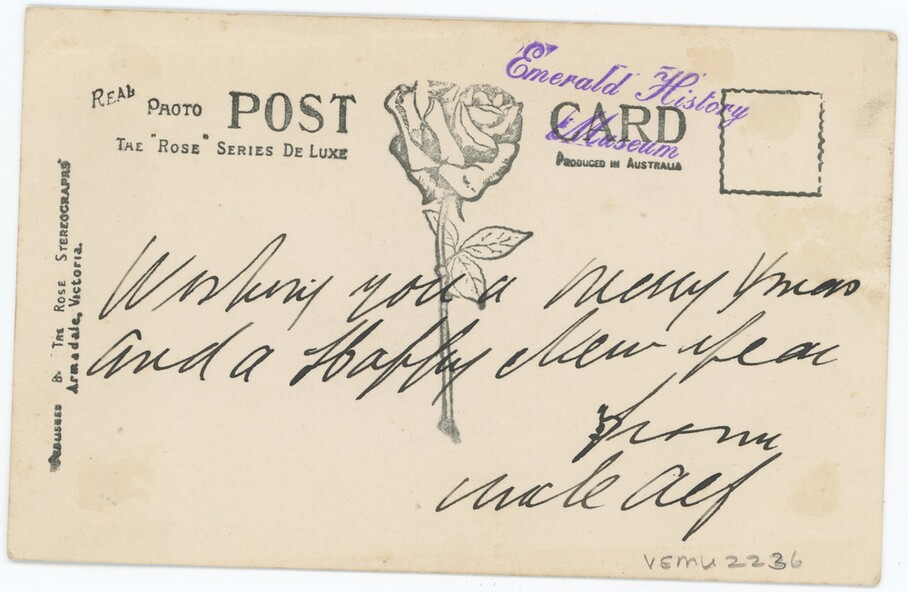 REAL PHOTO POST CARD
THE "ROSE" SERIES DE LUXE
PRODUCED IN AUSTRALIA
Emerald History
Museum
PUBLISHED BY THE ROSE STEREOGRAPHS
Armadale, Victoria.
Wishing you a merry Xmas
and a Happy New Year
from
uncle Alf
VEMU2236